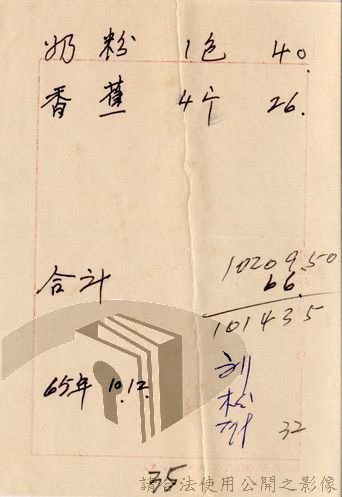 奶粉 1包 40.
香蕉 4斤 26.
1020950
合计 66.
101435
65年 10.12.
松
32
35
請合法使用公開之影像